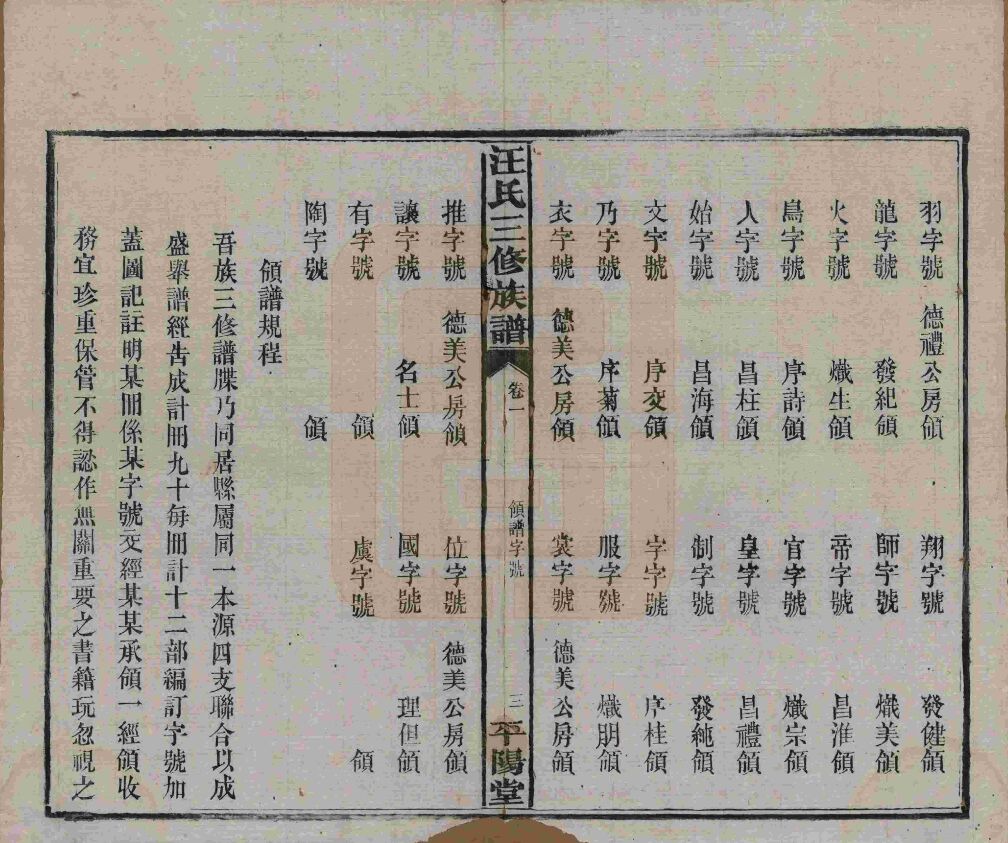 羽字號　德禮公房領　翔字號　發健領
龍字號　發紀領　師字號　熾美領
火字號　熾生領　帝字號　昌淮領
鳥字號　序詩領　官字號　熾宗領
人字號　昌柱領　皇字號　昌禮領
始字號　昌海領　制字號　發純領
文字號　序交領　字字號　序桂領
乃字號　序菊領　服字號　熾朋領
衣字號　德美公房領　裳字號　德美公房領
汪氏三修族譜　卷一　領譜字號　三　平陽堂
推字號　德美公房領　位字號　德美公房領
讓字號　名士領　國字號　理但領
有字號　領　虞字號　領
陶字號　領
領譜規程
吾族三修譜牒乃同居縣屬同一本源四支聯合以成
盛舉譜經告成計冊九十每冊計十二部編訂字號加
蓋圖記註明某冊係某字號交經某某承領一經領收
務宜珍重保管不得認作無關重要之書籍玩忽視之